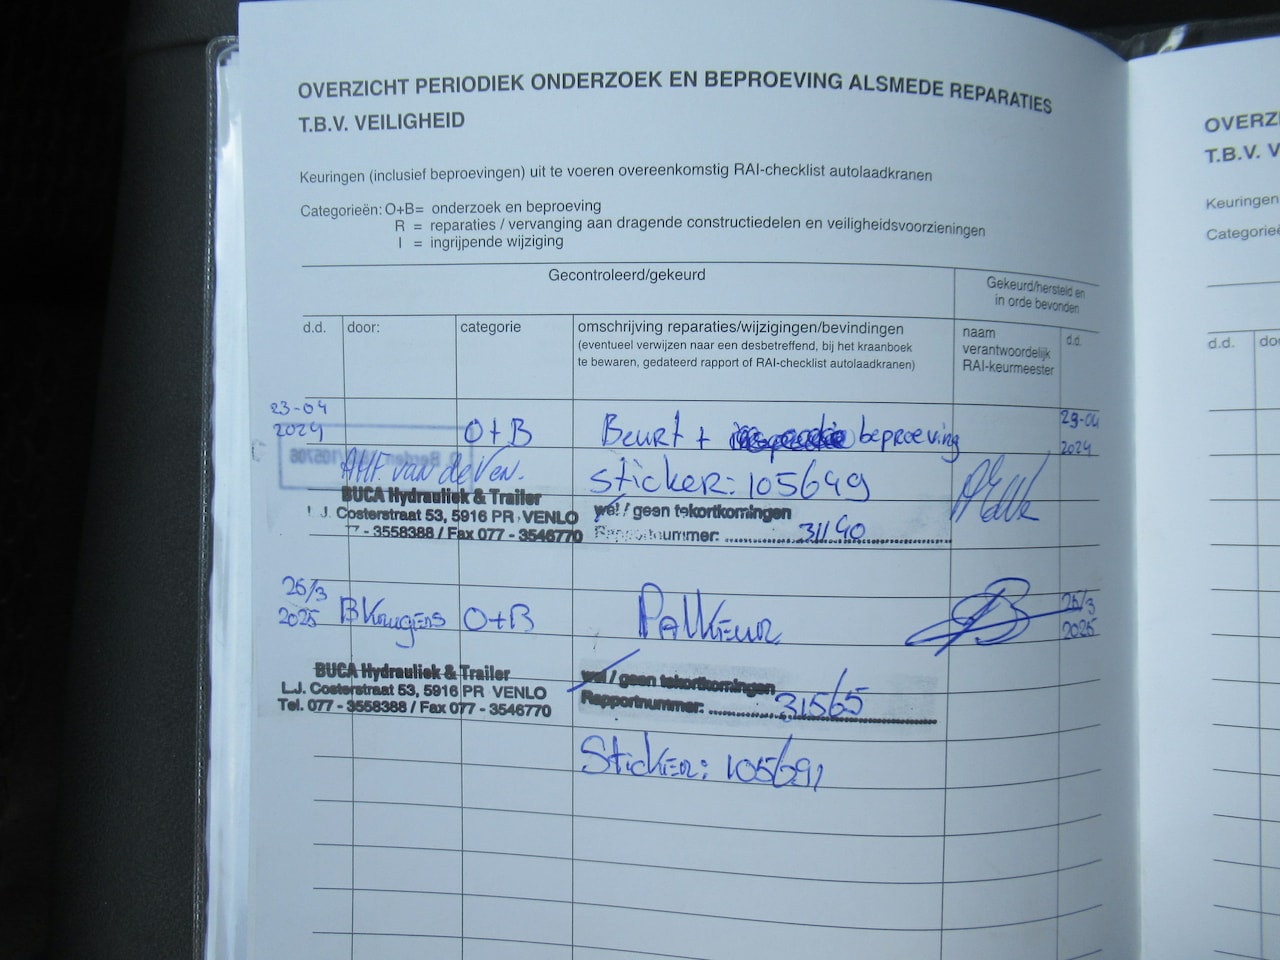 OVERZICHT PERIODIEK ONDERZOEK EN BEPROEVING ALSMEDE REPARATIES
T.B.V. VEILIGHEID
Keuringen (inclusief beproevingen) uit te voeren overeenkomstig RAI-checklist autolaadkranen
Categorieën: O+B= onderzoek en beproeving
R = reparaties / vervanging aan dragende constructiedelen en veiligheidsvoorzieningen
I = ingrijpende wijziging
Gecontroleerd/gekeurd
Gekeurd/hersteld en
in orde bevonden
d.d.
door:
categorie
omschrijving reparaties/wijzigingen/bevindingen
(eventueel verwijzen naar een desbetreffend, bij het kraanboek
te bewaren, gedateerd rapport of RAI-checklist autolaadkranen)
naam
verantwoordelijk
RAI-keurmeester
d.d.
23-04
2024
O+B
Beurt + beproeving
2024
van de Ven.
sticker: 105649
BUCA Hydrauliek & Trailer
J. Costerstraat 53, 5916 PR VENLO
- 3558388 / Fax 077 - 3546770
wel / geen tekortkomingen
Rapportnummer: 31140
26/3
2025
B Krugers
O+B
PalKeur
26/3
2025
BUCA Hydrauliek & Trailer
L.J. Costerstraat 53, 5916 PR VENLO
Tel. 077 - 3558388 / Fax 077 - 3546770
wel / geen tekortkomingen
Rapportnummer: 31565
Sticker: 105691
OVERZ
T.B.V. V
Keuringen
Categorieë
d.d.
doo